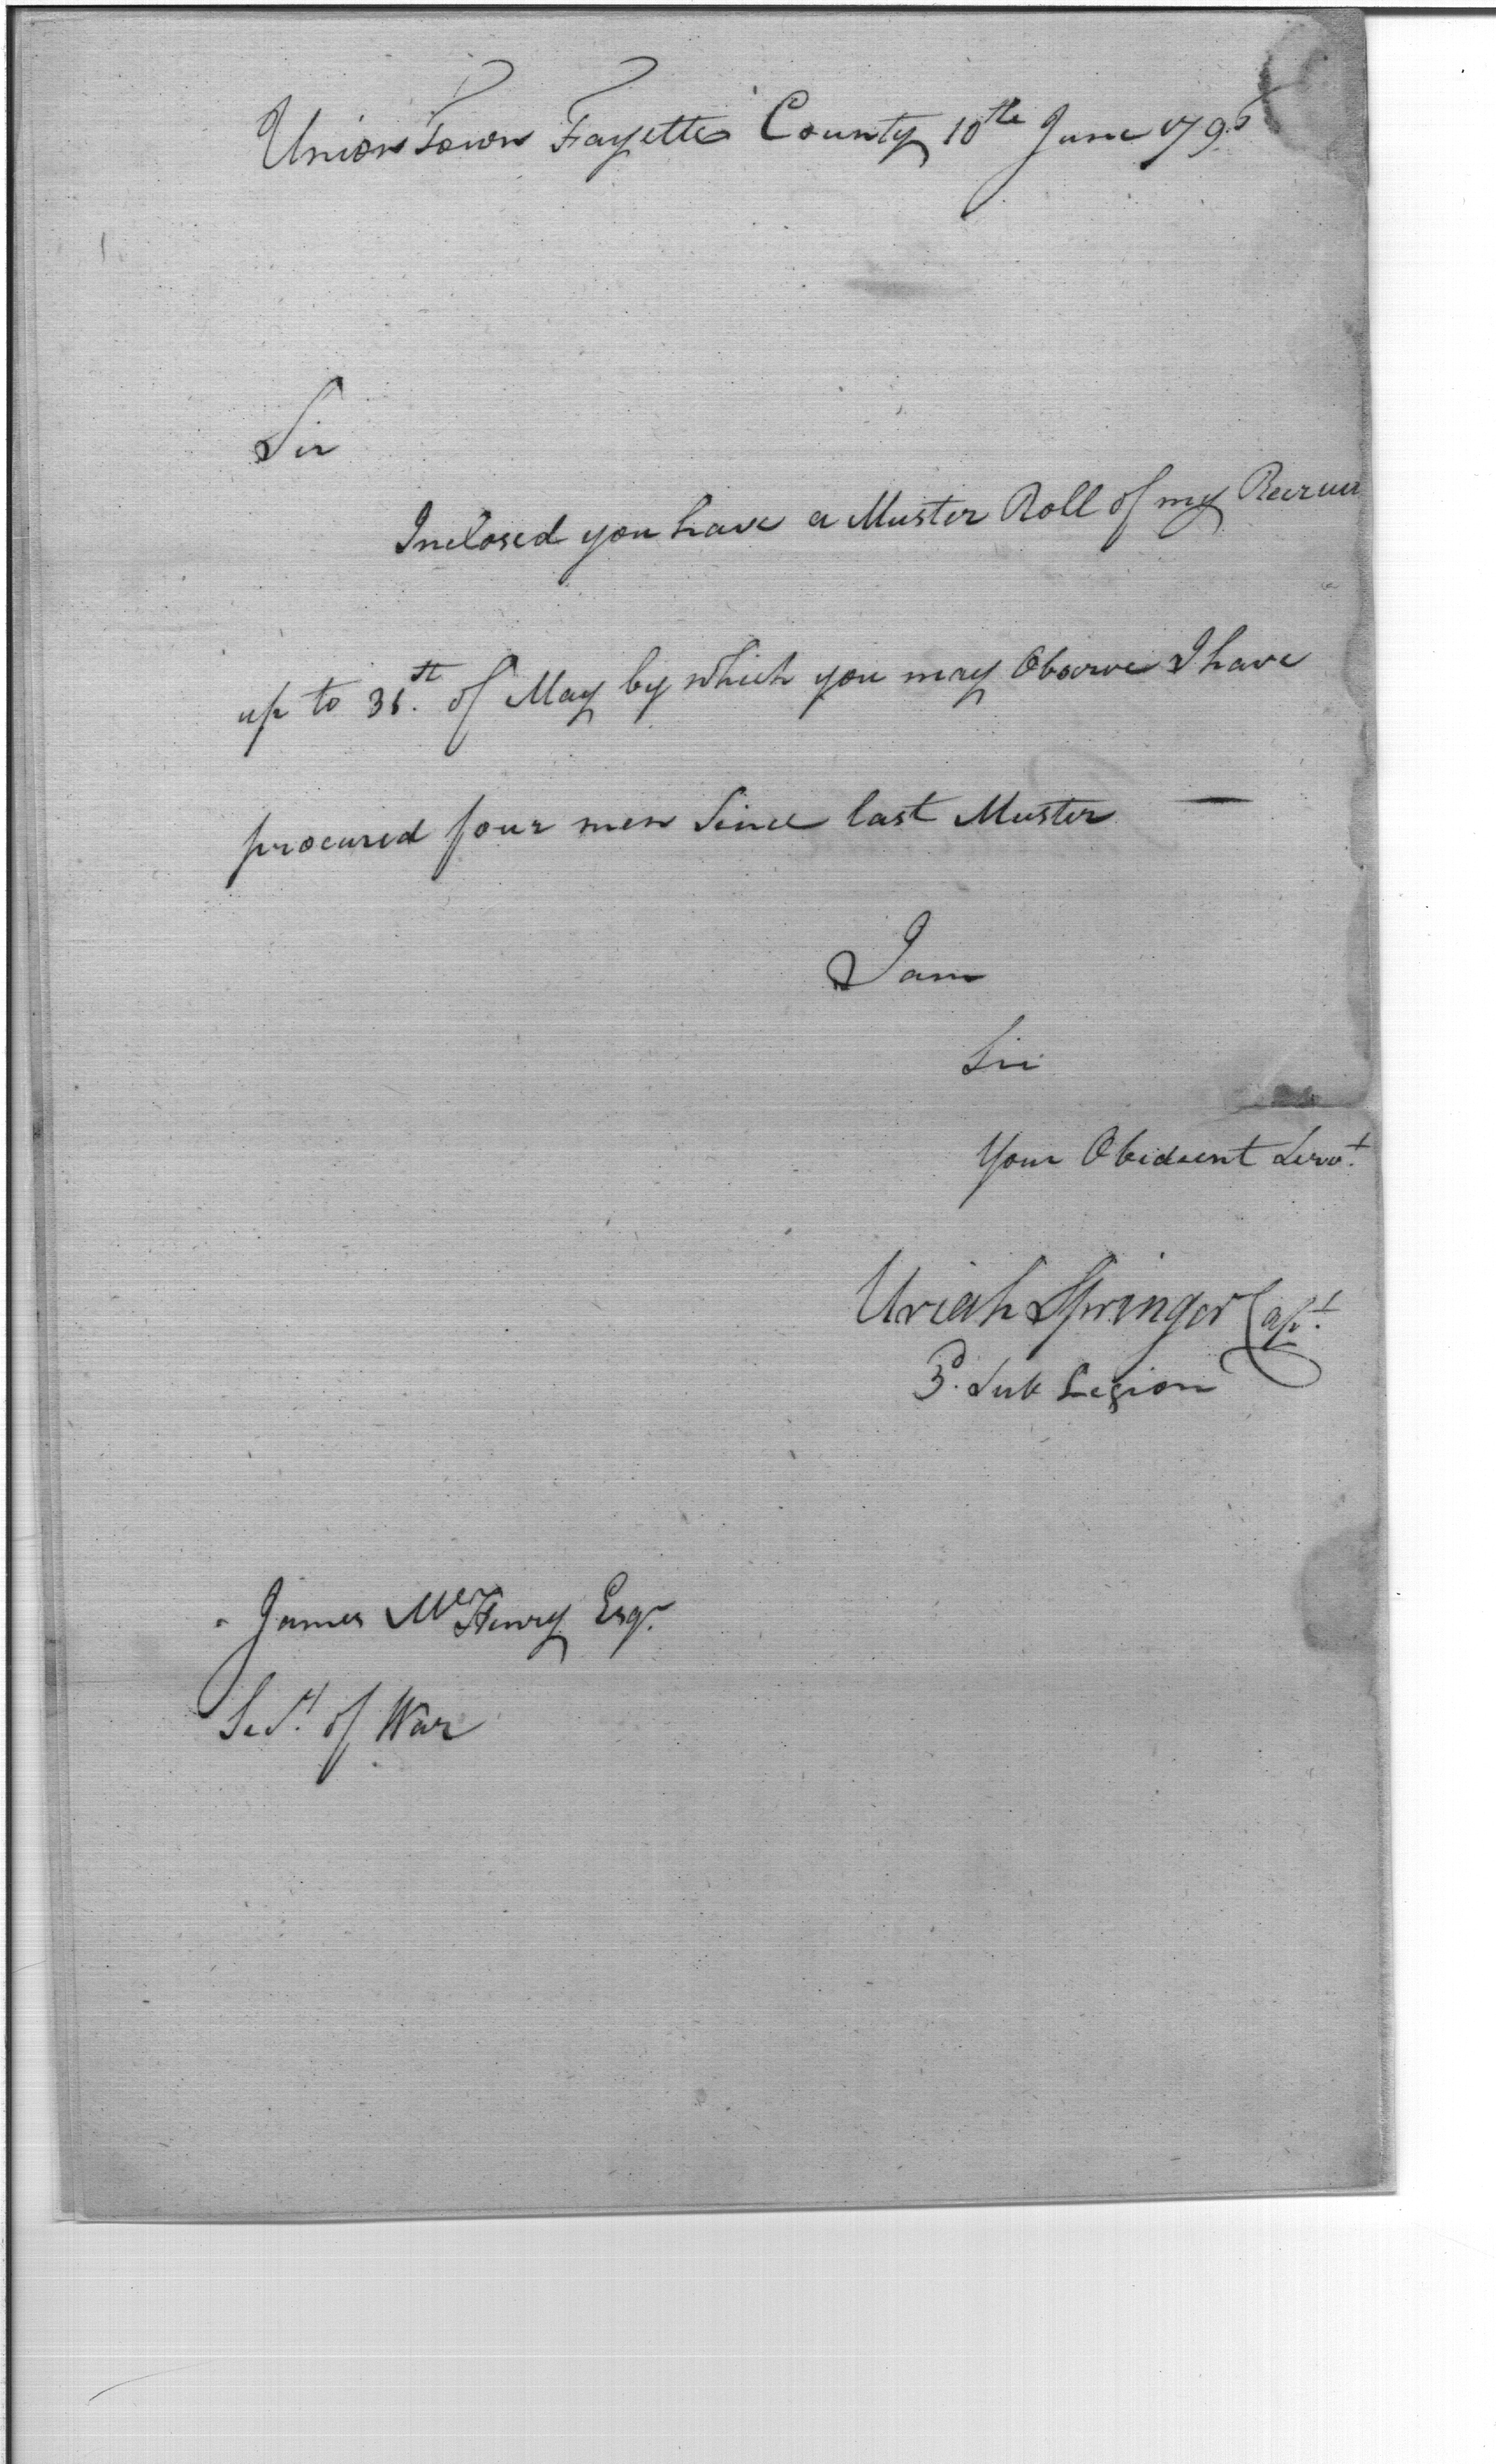 Union Town Fayette County 10th June 1796
Sir
Inclosed you have a Muster Roll of my Recrui
up to 31st. of May by which you may Observe I have
procured four men Since last Muster —
I am
Sir
Your Obedient Servt.
Uriah Springer Capt.
3d. Sub Legion
James McHenry Esqr.
of War